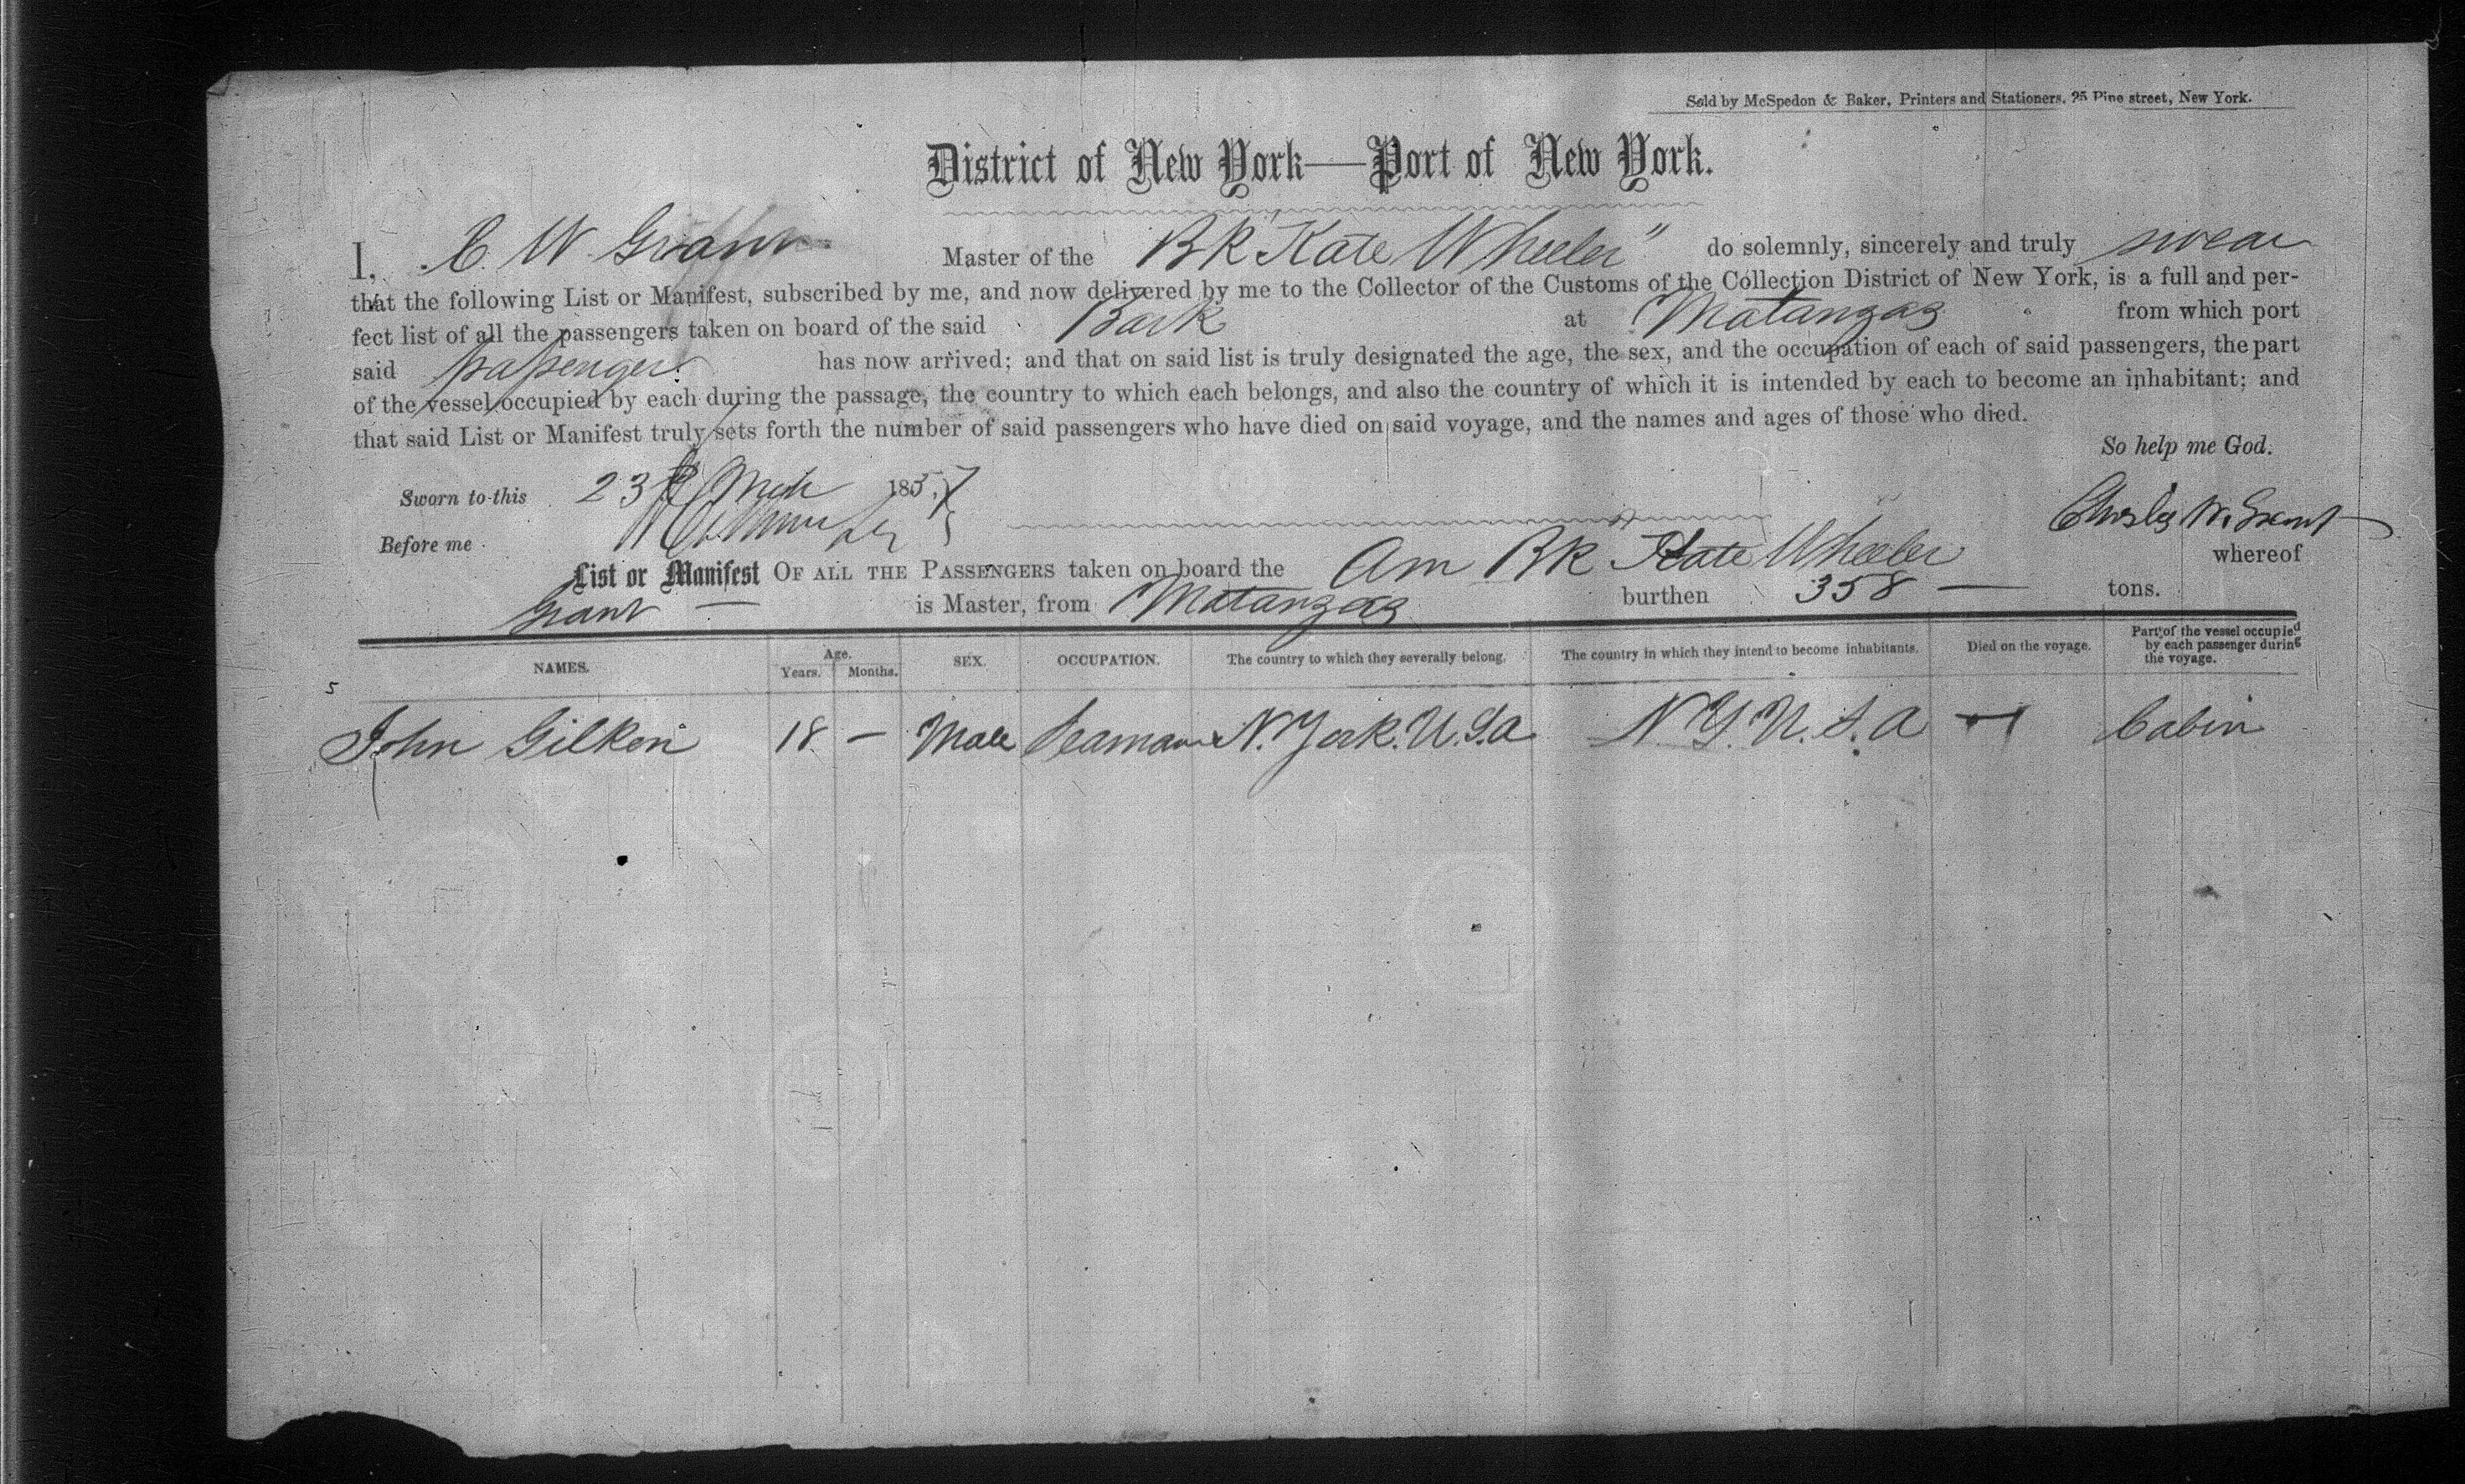 Sold by McSpedon & Baker, Printers and Stationers, 25 Pine street, New York.
District of New York—Port of New York.
I, C. W. Grant Master of the BK "Kate Wheeler" do solemnly, sincerely and truly swear
that the following List or Manifest, subscribed by me, and now delivered by me to the Collector of the Customs of the Collection District of New York, is a full and per-
fect list of all the passengers taken on board of the said Bark at Matanzas from which port
said passenger has now arrived; and that on said list is truly designated the age, the sex, and the occupation of each of said passengers, the part
of the vessel occupied by each during the passage, the country to which each belongs, and also the country of which it is intended by each to become an inhabitant; and
that said List or Manifest truly sets forth the number of said passengers who have died on said voyage, and the names and ages of those who died.
So help me God.
Sworn to this 23d Mch 1857
Before me
W. Grant
List or Manifest OF ALL THE PASSENGERS taken on board the Am BK Kate Wheeler whereof
Grant — is Master, from Matanzas burthen 358 — tons.
NAMES. Age. Years. Months. SEX. OCCUPATION. The country to which they severally belong. The country in which they intend to become inhabitants. Died on the voyage. Part of the vessel occupied by each passenger during the voyage.
5
John Gilken 18 — Male Seaman N. York. U.S.a N.Y. U.S.A — Cabin